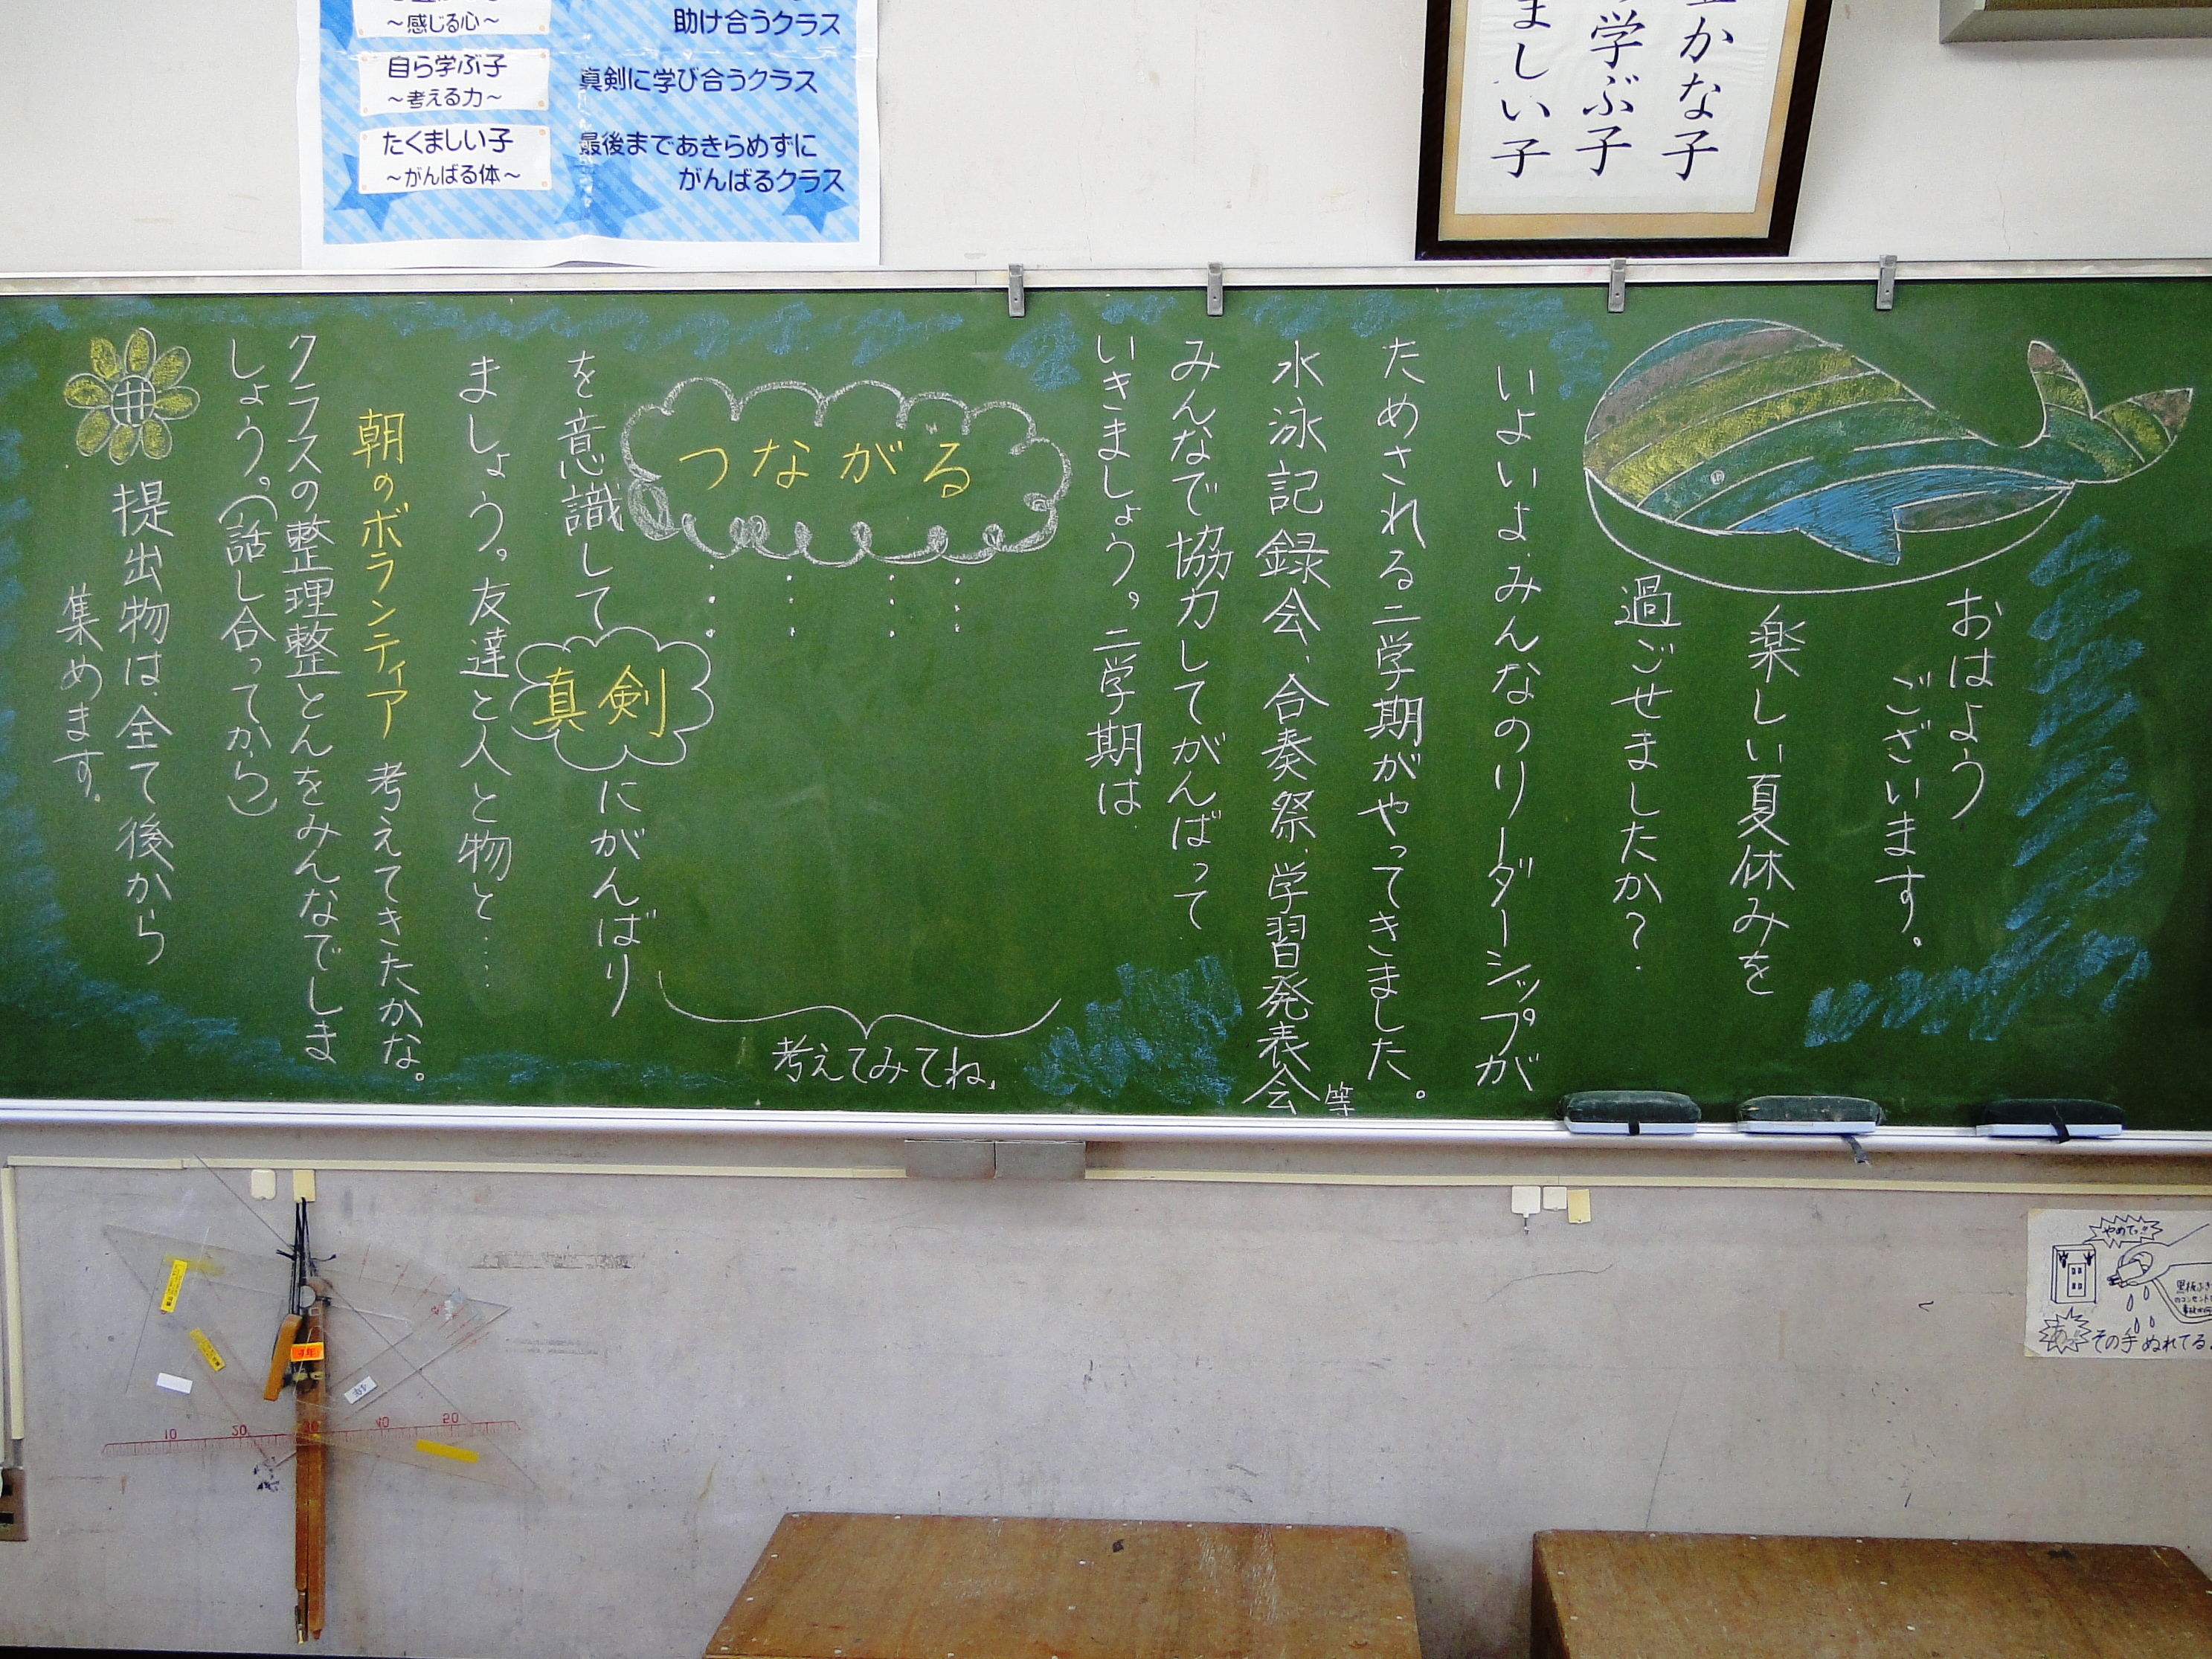 ～感じる心～
自ら学ぶ子
～考える力～
たくましい子
～がんばる体～
助け合うクラス
真剣に学び合うクラス
最後まであきらめずに
がんばるクラス
かな子
学ぶ子
ましい子
おはよう
ございます。
楽しい夏休みを
過ごせましたか？
いよいよ、みんなのリーダーシップが
ためされる二学期がやってきました。
水泳記録会、合奏祭、学習発表会等
みんなで協力してがんばって
いきましょう。二学期は
つながる
考えてみてね
を意識して真剣にがんばり
ましょう。友達と人と物と……
朝のボランティア 考えてきたかな。
クラスの整理整とんをみんなでしま
しょう。（話し合ってから）
提出物は、全て後から
集めます。
10 20 30 40 50
4年
やめて
その手ぬれてる